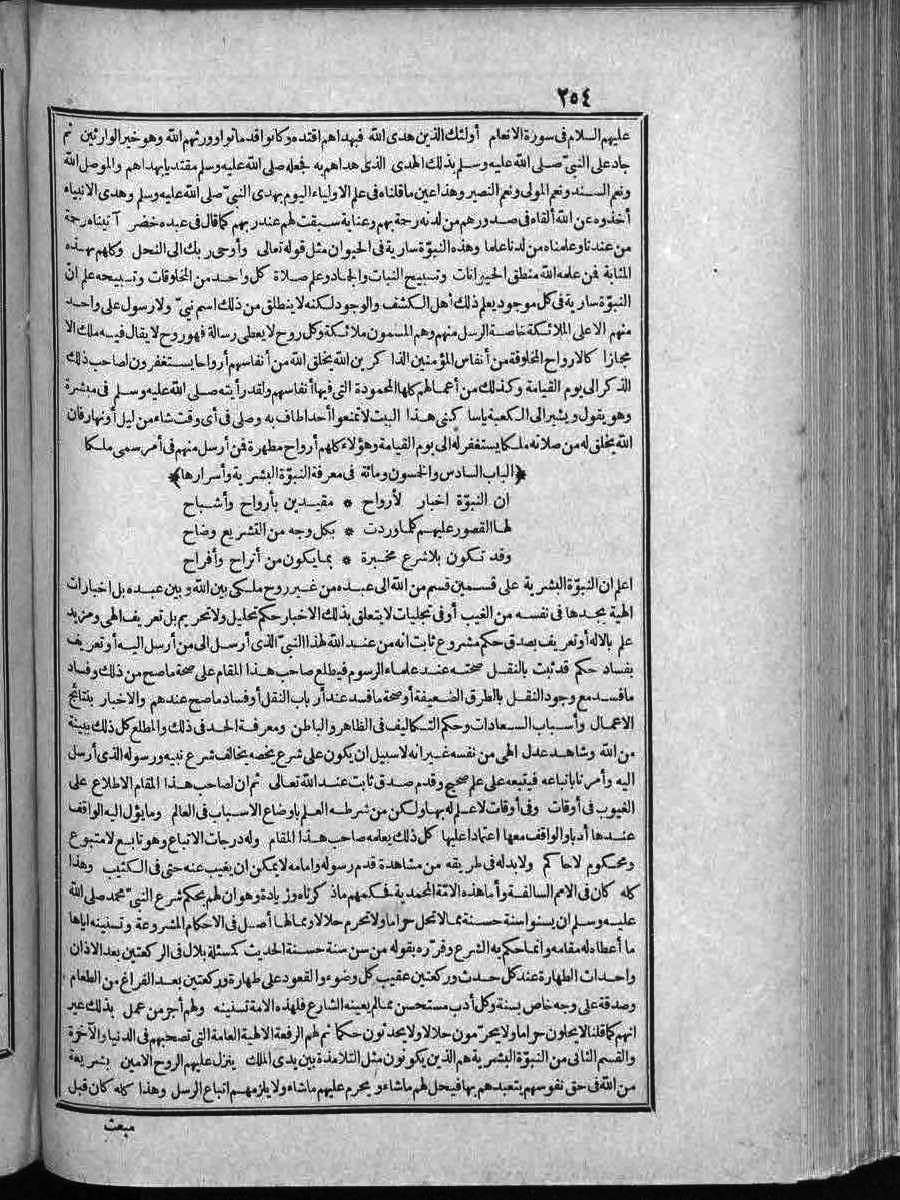 ٢٥٤
عليهم السلام فى سورة الانعام أولئك الذين هدى الله فبهداهم اقتده وكانوا قد ماتوا وورثهم الله وهو خير الوارثين ثم
جاد على النبىّ صلى الله عليه وسلم بذلك الهدى الذى هداهم به فجعله صلى الله عليه وسلم مقتديا بهداهم والموصل الله
ونعم السند ونعم المولى ونعم النصير وهذا عين ما قلناه فى علم الاولياء اليوم بهدى النبىّ صلى الله عليه وسلم وهدى الانبياء
أخذوه عن الله ألقاه فى صدورهم من لدنه رحمة بهم وعناية سبقت لهم عند ربهم كما قال فى عبده خضر آتيناه رحمة
من عندنا وعلمناه من لدنا علما وهذه النبوّة سارية فى الحيوان مثل قوله تعالى وأوحى ربك الى النحل وكلهم بهذه
المثابة فمن علمه الله منطق الحيوانات وتسبيح النبات والجماد وعلم صلاة كل واحد من المخلوقات وتسبيحه علم انّ
النبوّة سارية فى كل موجود يعلم ذلك أهل الكشف والوجود لكنه لا ينطلق من ذلك اسم نبىّ ولا رسول على واحد
منهم الا على الملائكة خاصة الرسل منهم وهم المسمون ملائكة وكل روح لا يعطى رسالة فهو روح لا يقال فيه ملك الا
مجازا كالارواح المخلوقة من أنفاس المؤمنين الذاكرين الله يخلق الله من أنفاسهم أرواحا يستغفرون لصاحب ذلك
الذكر الى يوم القيامة وكذلك من أعمالهم كلها المحمودة التى فيها أنفاسهم ولقد رأيته صلى الله عليه وسلم فى مبشرة
وهو يقول ويشير الى الكعبة ياسا كنى هذا البيت لا تمنعوا أحدا طاف به وصلى فى أى وقت شاء من ليل أو نهار فان
الله يخلق له من صلاته ملكا يستغفر له الى يوم القيامة وهؤلاء كلهم أرواح مطهرة فمن أرسل منهم فى أمر سمى ملكا
﴿الباب السادس والخمسون ومائة فى معرفة النبوّة البشرية وأسرارها﴾
ان النبوّة اخبار لأرواح * مقيدين بأرواح وأشباح
لها القصور عليهم كلما وردت * بكل وجه من التشريع وضاح
وقد تكون بلا شرع مخبرة * بما يكون من أتراح وأفراح
اعلم ان النبوّة البشرية على قسمين قسم من الله الى عبده من غير روح ملكى بين الله وبين عبده بل اخبارات
الهية يجدها فى نفسه من الغيب أو فى تجليات لا يتعلق بذلك الاخبار حكم تحليل ولا تحريم بل تعريف الهى ومزيد
علم بالاله أو تعريف بصدق حكم مشروع ثابت انه من عند الله لهذا النبىّ الذى أرسل الى من أرسل اليه أو تعريف
بفساد حكم قد ثبت بالنقل صحته عند علماء الرسوم فيطلع صاحب هذا المقام على صحة ما صح من ذلك وفساد
ما فسد مع وجود النقل بالطرق الضعيفة أو صحة ما فسد عند أرباب النقل أو فساد ما صح عندهم والاخبار بنتائج
الاعمال وأسباب السعادات وحكم التكاليف فى الظاهر والباطن ومعرفة الحد فى ذلك والمطلع كل ذلك ببينة
من الله وشاهد عدل الهى من نفسه غير انه لا سبيل ان يكون على شرع يخصه يخالف شرع نبيه ورسوله الذى أرسل
اليه وأمرنا باتباعه فيتبعه على علم صحيح وقدم صدق ثابت عند الله تعالى ثم ان لصاحب هذا المقام الاطلاع على
الغيوب فى أوقات وفى أوقات لا علم له بها ولكن من شرطه العلم باوضاع الاسباب فى العالم وما يؤل اليه الواقف
عندها أدبا والواقف معها اعتمادا عليها كل ذلك يعلمه صاحب هذا المقام وله درجات الاتباع وهو تابع لا متبوع
ومحكوم لا حاكم ولا بد له فى طريقه من مشاهدة قدم رسوله وامامه لا يمكن ان يغيب عنه حتى فى الكثيب وهذا
كله كان فى الامم السالفة وأما هذه الامّة المحمدية فحكمهم ماذكرناه وزيادة وهو ان لهم بحكم شرع النبىّ محمد صلى الله
عليه وسلم ان يسنوا سنة حسنة مما لا تحل حراما ولا تحرم حلالا ومما لها أصل فى الاحكام المشروعة وتسنينه اياها
ما أعطاه له مقامه وانما حكم به الشرع وقرّره بقوله من سن سنة حسنة الحديث كمسئلة بلال فى الركعتين بعد الاذان
واحداث الطهارة عند كل حدث وركعتين عقيب كل وضوء والقعود على طهارة وركعتين بعد الفراغ من الطعام
وصدقة على وجه خاص بسنة وكل أدب مستحسن مما لم يعينه الشارع فلهذه الامة تسنينه ولهم أجر من عمل بذلك غير
انهم كما قلنا لا يحلون حراما ولا يحرّمون حلالا ولا يحدثون حكما ثم لهم الرفعة الالهية العامة التى تصحبهم فى الدنيا والآخرة
والقسم الثانى من النبوّة البشرية هم الذين يكونون مثل التلامذة بين يدى الملك ينزل عليهم الروح الامين بشريعة
من الله فى حق نفوسهم يتعبدهم بها فيحل لهم ما شاء ويحرم عليهم ما شاء ولا يلزمهم اتباع الرسل وهذا كله كان قبل
مبعث